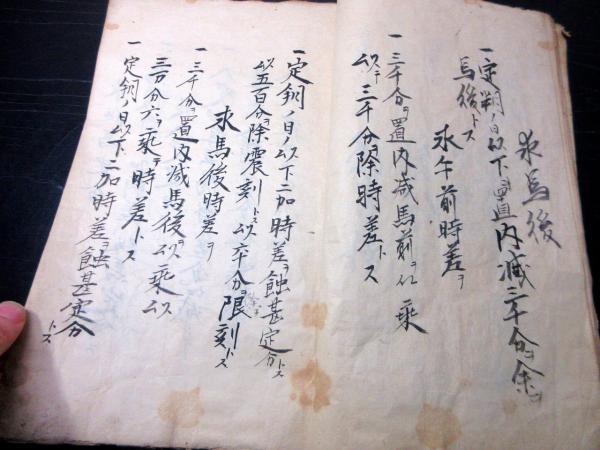 求馬後
一定朔ノ日ノ以下ヲ置内減三千分ヲ余ヲ
馬後トス
求午前時差ヲ
一三千分ヲ置内减馬前ヲ以乗
以テ三千分ヲ除時差トス
一定朔ノ日ノ以下二加時差ヲ蝕甚定分トス
以五百分ヲ除震刻トス以卒分ヲ限刻トス
求馬後時差ヲ
一三千分ヲ置内减馬後ヲ以乗以
三万分六ヲ乘ヲ時差トス
一定朔ノ日以下二加時差ヲ蝕甚定分トス